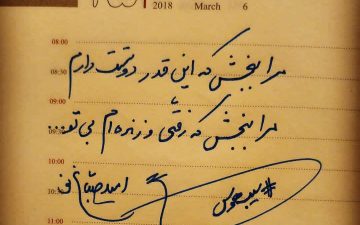 2018 March 6
08:00
مرا ببخش که این قدر دوستت دارم
08:30
09:00
مرا ببخش که رفتی و زنده ام بی تو...
09:30
10:00
امید صباغ نو
10:30
#سیب_هوس
11:00